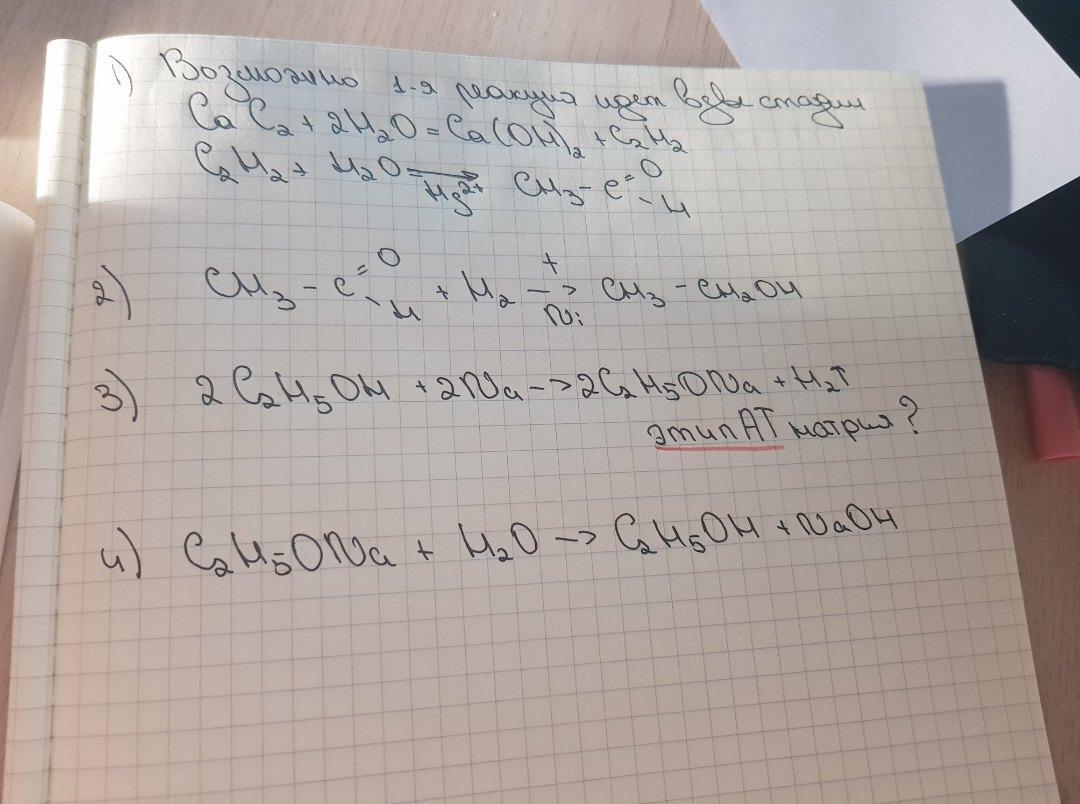 1) Возможно 1-я реакция идет в две стадии
CaC₂ + 2H₂O = Ca(OH)₂ + C₂H₂
C₂H₂ + H₂O ⟶ Hg²⁺ CH₃ - C =O -H
2) CH₃ - C =O -H + H₂ t → Ni CH₃ - CH₂OH
3) 2C₂H₅OH + 2Na -> 2C₂H₅ONa + H₂↑
этилАТ натрия?
4) C₂H₅ONa + H₂O -> C₂H₅OH + NaOH